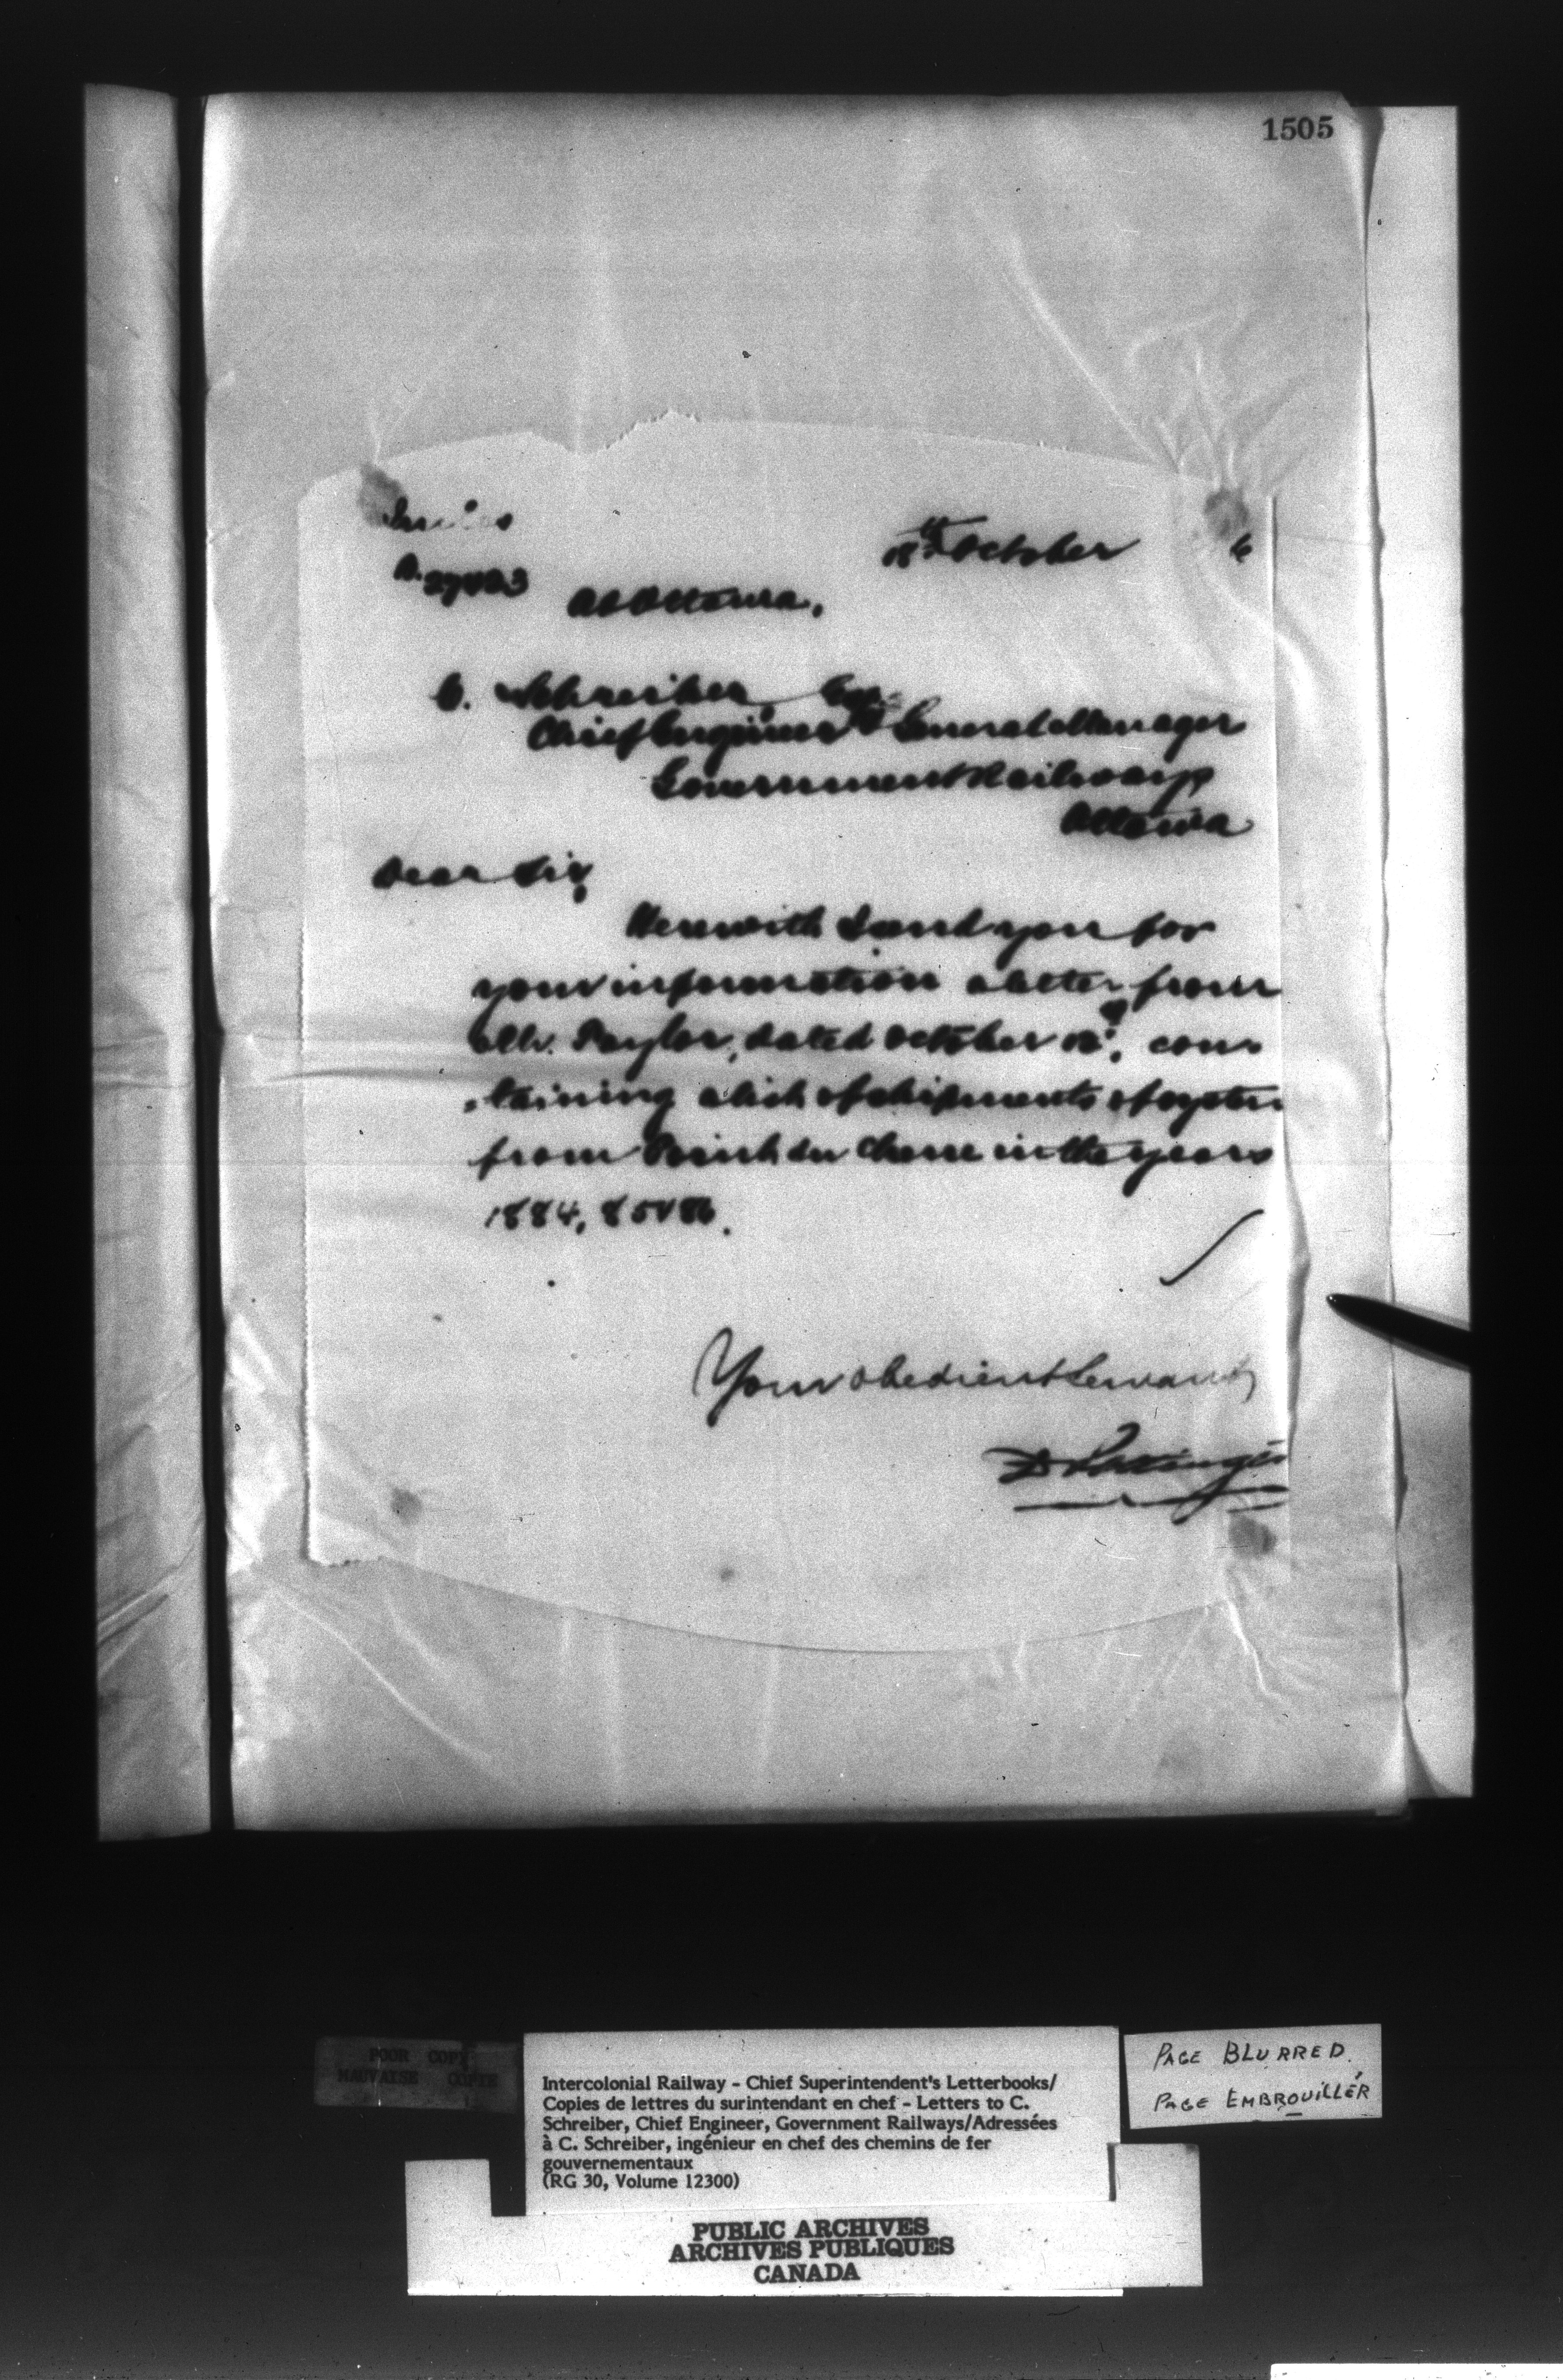 1505
18th October 6
A. 27423
At Ottawa.
C. Schreiber, Esq.
Chief Engineer & General Manager
Government Railways
Ottawa
Dear Sir,
Herewith I send you for
your information a letter from
Mr. Taylor, dated October 18th, con-
-taining a list of shipments of oysters
from Point du Chene in the years
1884, 85 & 86.
Your obedient Servant,
D Pottinger
POOR COPY
MAUVAISE COPIE
Intercolonial Railway - Chief Superintendent's Letterbooks/
Copies de lettres du surintendant en chef - Letters to C.
Schreiber, Chief Engineer, Government Railways/Adressées
à C. Schreiber, ingénieur en chef des chemins de fer
gouvernementaux
(RG 30, Volume 12300)
PAGE BLURRED
PAGE EMBROUILLÉR
PUBLIC ARCHIVES
ARCHIVES PUBLIQUES
CANADA